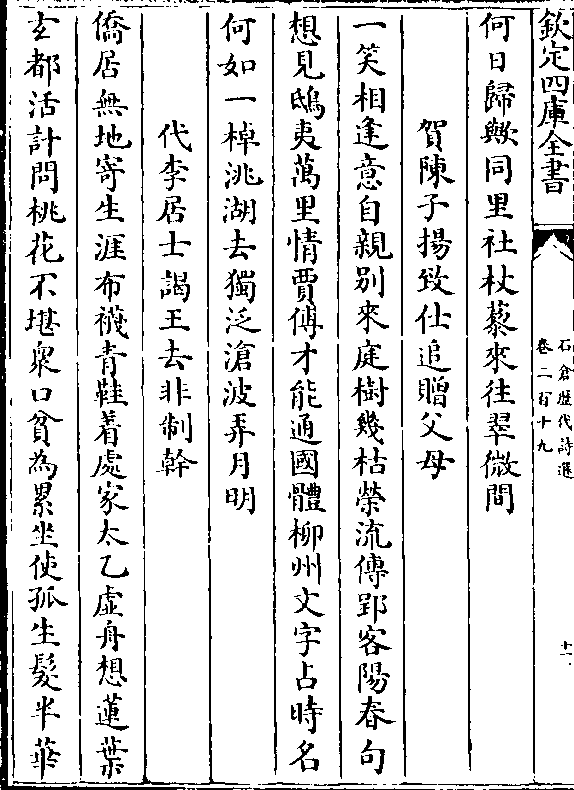 欽定四庫全書
石倉歷代詩選
卷二百十九
十一
何日歸歟同里社杖藜來往翠微間
賀陳子揚致仕追贈父母
一笑相逢意自親別來庭樹幾枯榮流傳郢客陽春句
想見鴟夷萬里情賈傅才能通國體柳州文字占時名
何如一棹洮湖去獨泛滄波弄月明
代李居士謁王去非制幹
僑居無地寄生涯布襪青鞋着處家太乙虛舟想蓮葉
玄都活計問桃花不堪衆口貧為累坐使孤生髮半華